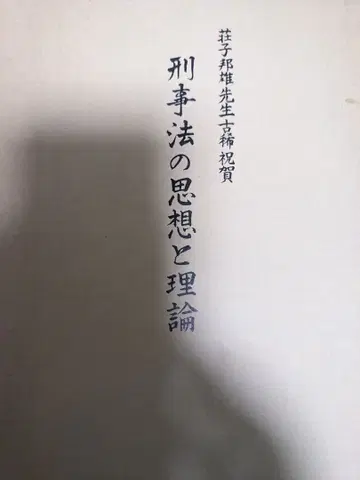 荘子邦雄先生古稀祝賀
刑事法の思想と理論